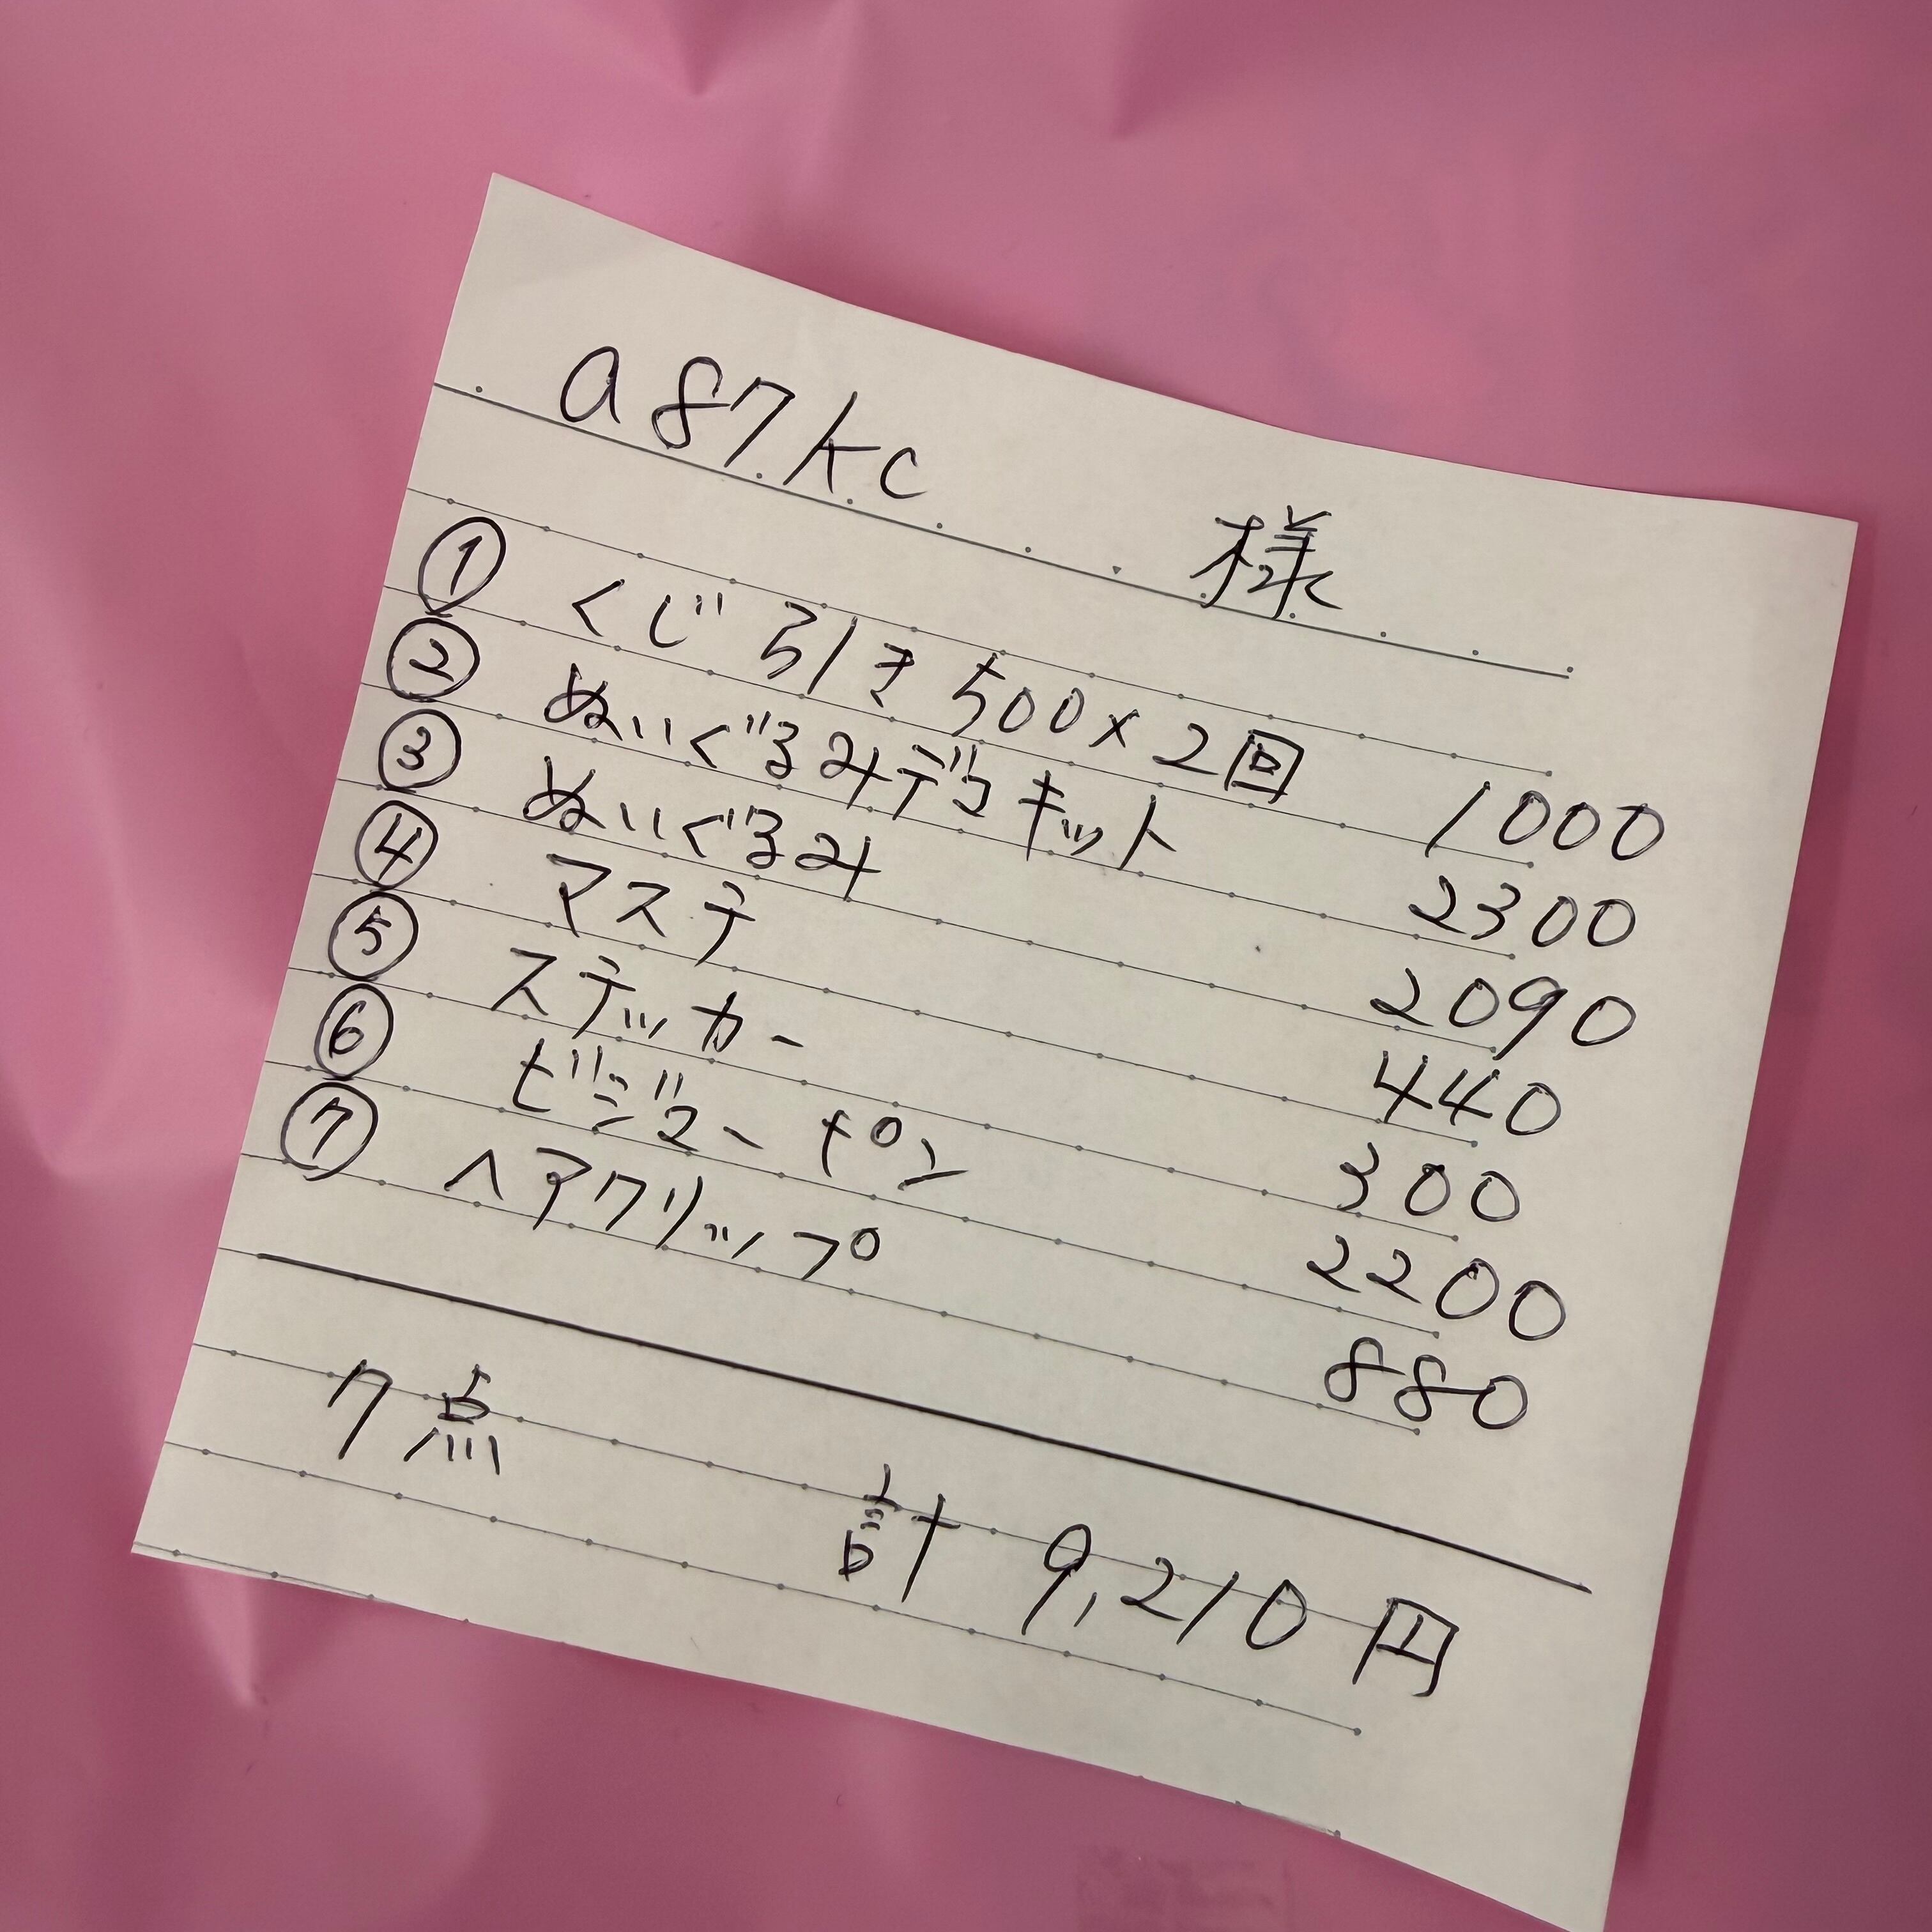 a87kc 様
① くじ引き500×2回 1000
② ぬいぐるみデコキット 2300
③ ぬいぐるみ 2090
④ マステ 440
⑤ ステッカー 300
⑥ ビジューポン 2200
⑦ ヘアクリップ 880
7点 計 9,210円